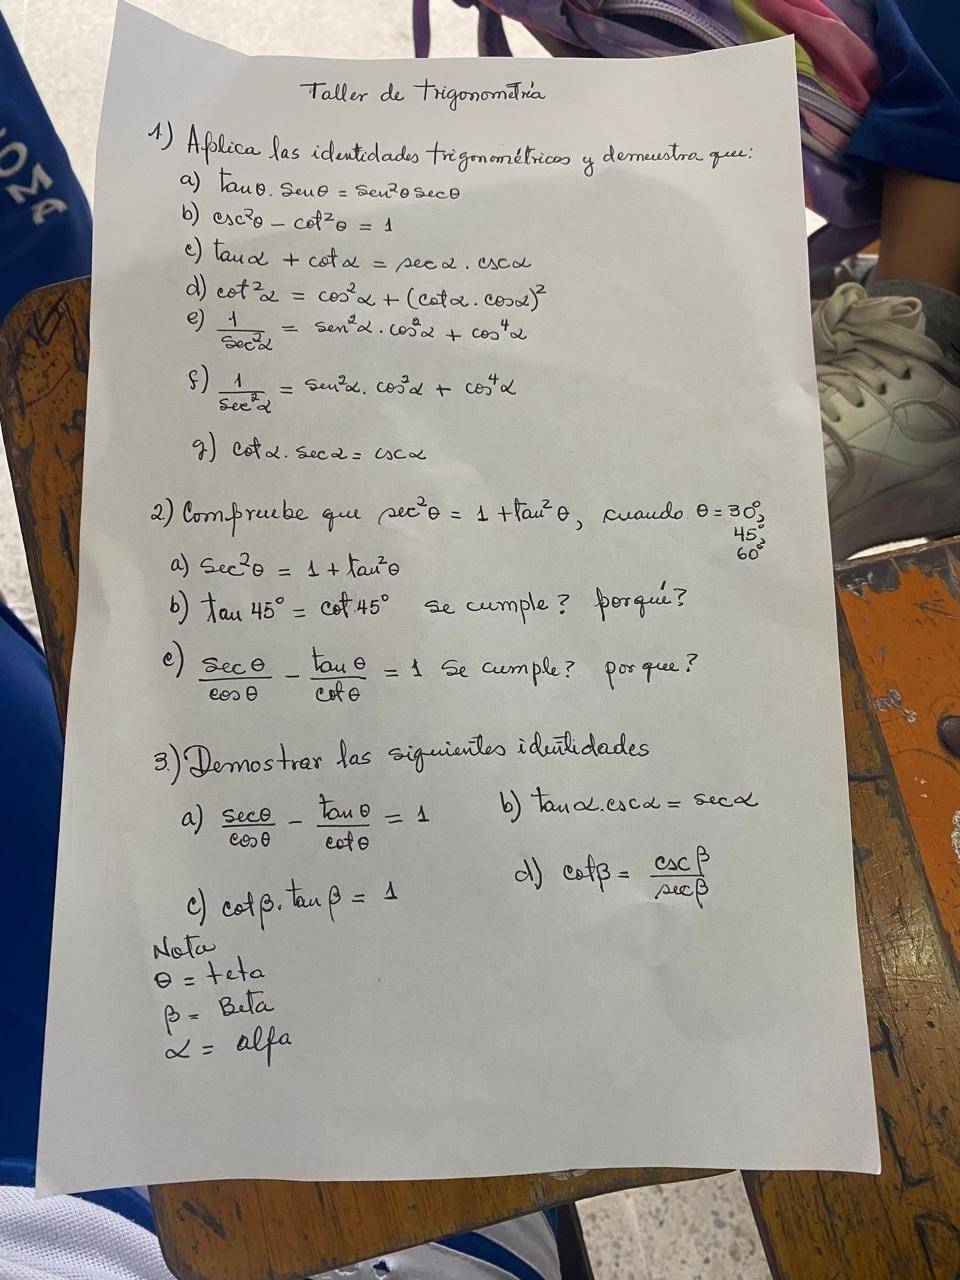 Taller de trigonometría
1.) Aplica las identidades trigonométricas y demuestra que:
a) tanθ. senθ = sen²θ secθ
b) csc²θ - cot²θ = 1
c) tanα + cotα = secα. cscα
d) cot²α = cos²α + (cotα. cosα)²
e) 1/sec²α = sen²α. cos²α + cos⁴α
f) 1/sec²α = sen²α. cos²α + cos⁴α
g) cotα. secα = cscα
2) Compruebe que sec²θ = 1 + tan²θ, cuando θ = 30°,
45°,
60°
a) sec²θ = 1 + tan²θ
b) tan 45° = cot 45° se cumple? porqué?
c) secθ/cosθ - tanθ/cotθ = 1 se cumple? por que?
3.) Demostrar las siguientes identidades
a) secθ/cosθ - tanθ/cotθ = 1 b) tanα.cscα = secα
c) cotβ. tanβ = 1 d) cotβ = cscβ/secβ
Nota
θ = teta
β = Beta
α = alfa
OMA